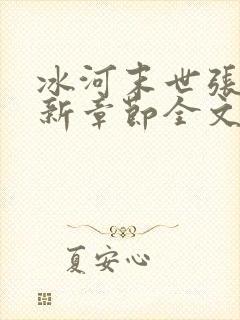 冰河末世張
新章節全文
夏安心